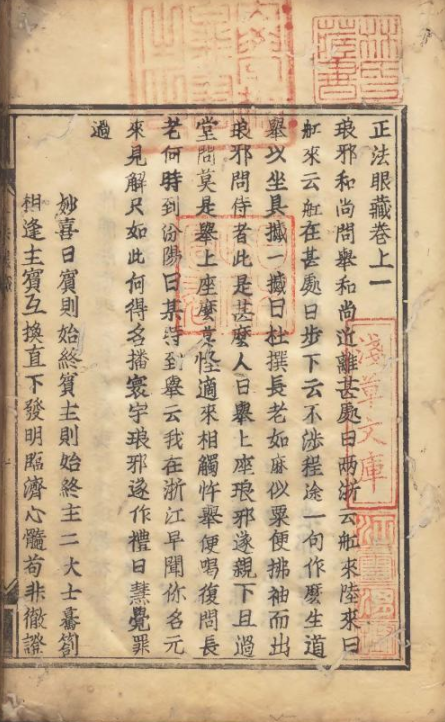 正法眼藏卷上一
琅邪和尚問舉和尚近離甚處曰兩浙云舡來陸來曰
舡來云舡在甚處曰步下云不涉程途一句作麼生道
舉以坐具摵一摵曰杜撰長老如麻似粟便拂袖而出
琅邪問侍者此是甚麼人曰舉上座琅邪遂親下旦過
堂問莫是舉上座麼莫怪適來相觸忤舉便喝復問長
老何時到汾陽曰某時到舉云我在浙江早聞你名元
來見解只如此何得名播寰宇琅邪遂作禮曰慧覺罪
過
妙喜曰賓則始終賓主則始終主二大士驀劄
相逢主賓互換直下發明臨濟心髓苟非徹證
林氏藏書
淺草文庫